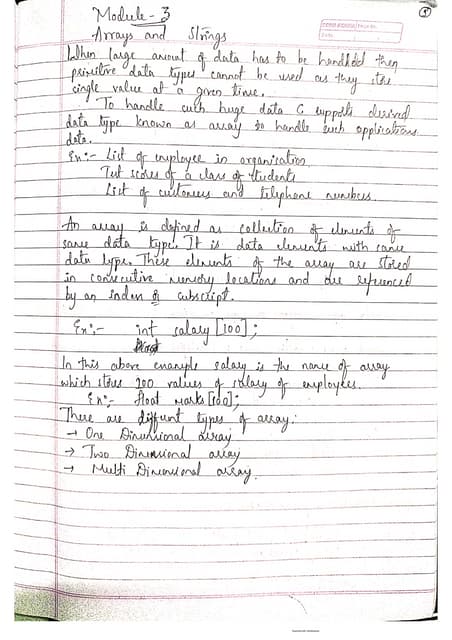 Module - 3
Arrays and Strings
When large amount of data has to be handled then
primitive data types cannot be used as they store
single value at a given time.
To handle such huge data C supports derived
data type known as array to handle such applications
data.
Ex:- List of employee in organisation
Test scores of a class of students
List of customers and telephone numbers.
An array is defined as collection of elements of
same data type. It is data elements with same
data type. These elements of the array are stored
in consecutive memory locations and are referenced
by an index or subscript.
Ex:- int salary [100];
In this above example salary is the name of array
which stores 100 values of salary of employees.
Ex:- float marks [100];
There are different types of array:
→ One Dimensional array
→ Two Dimensional array
→ Multi Dimensional array.